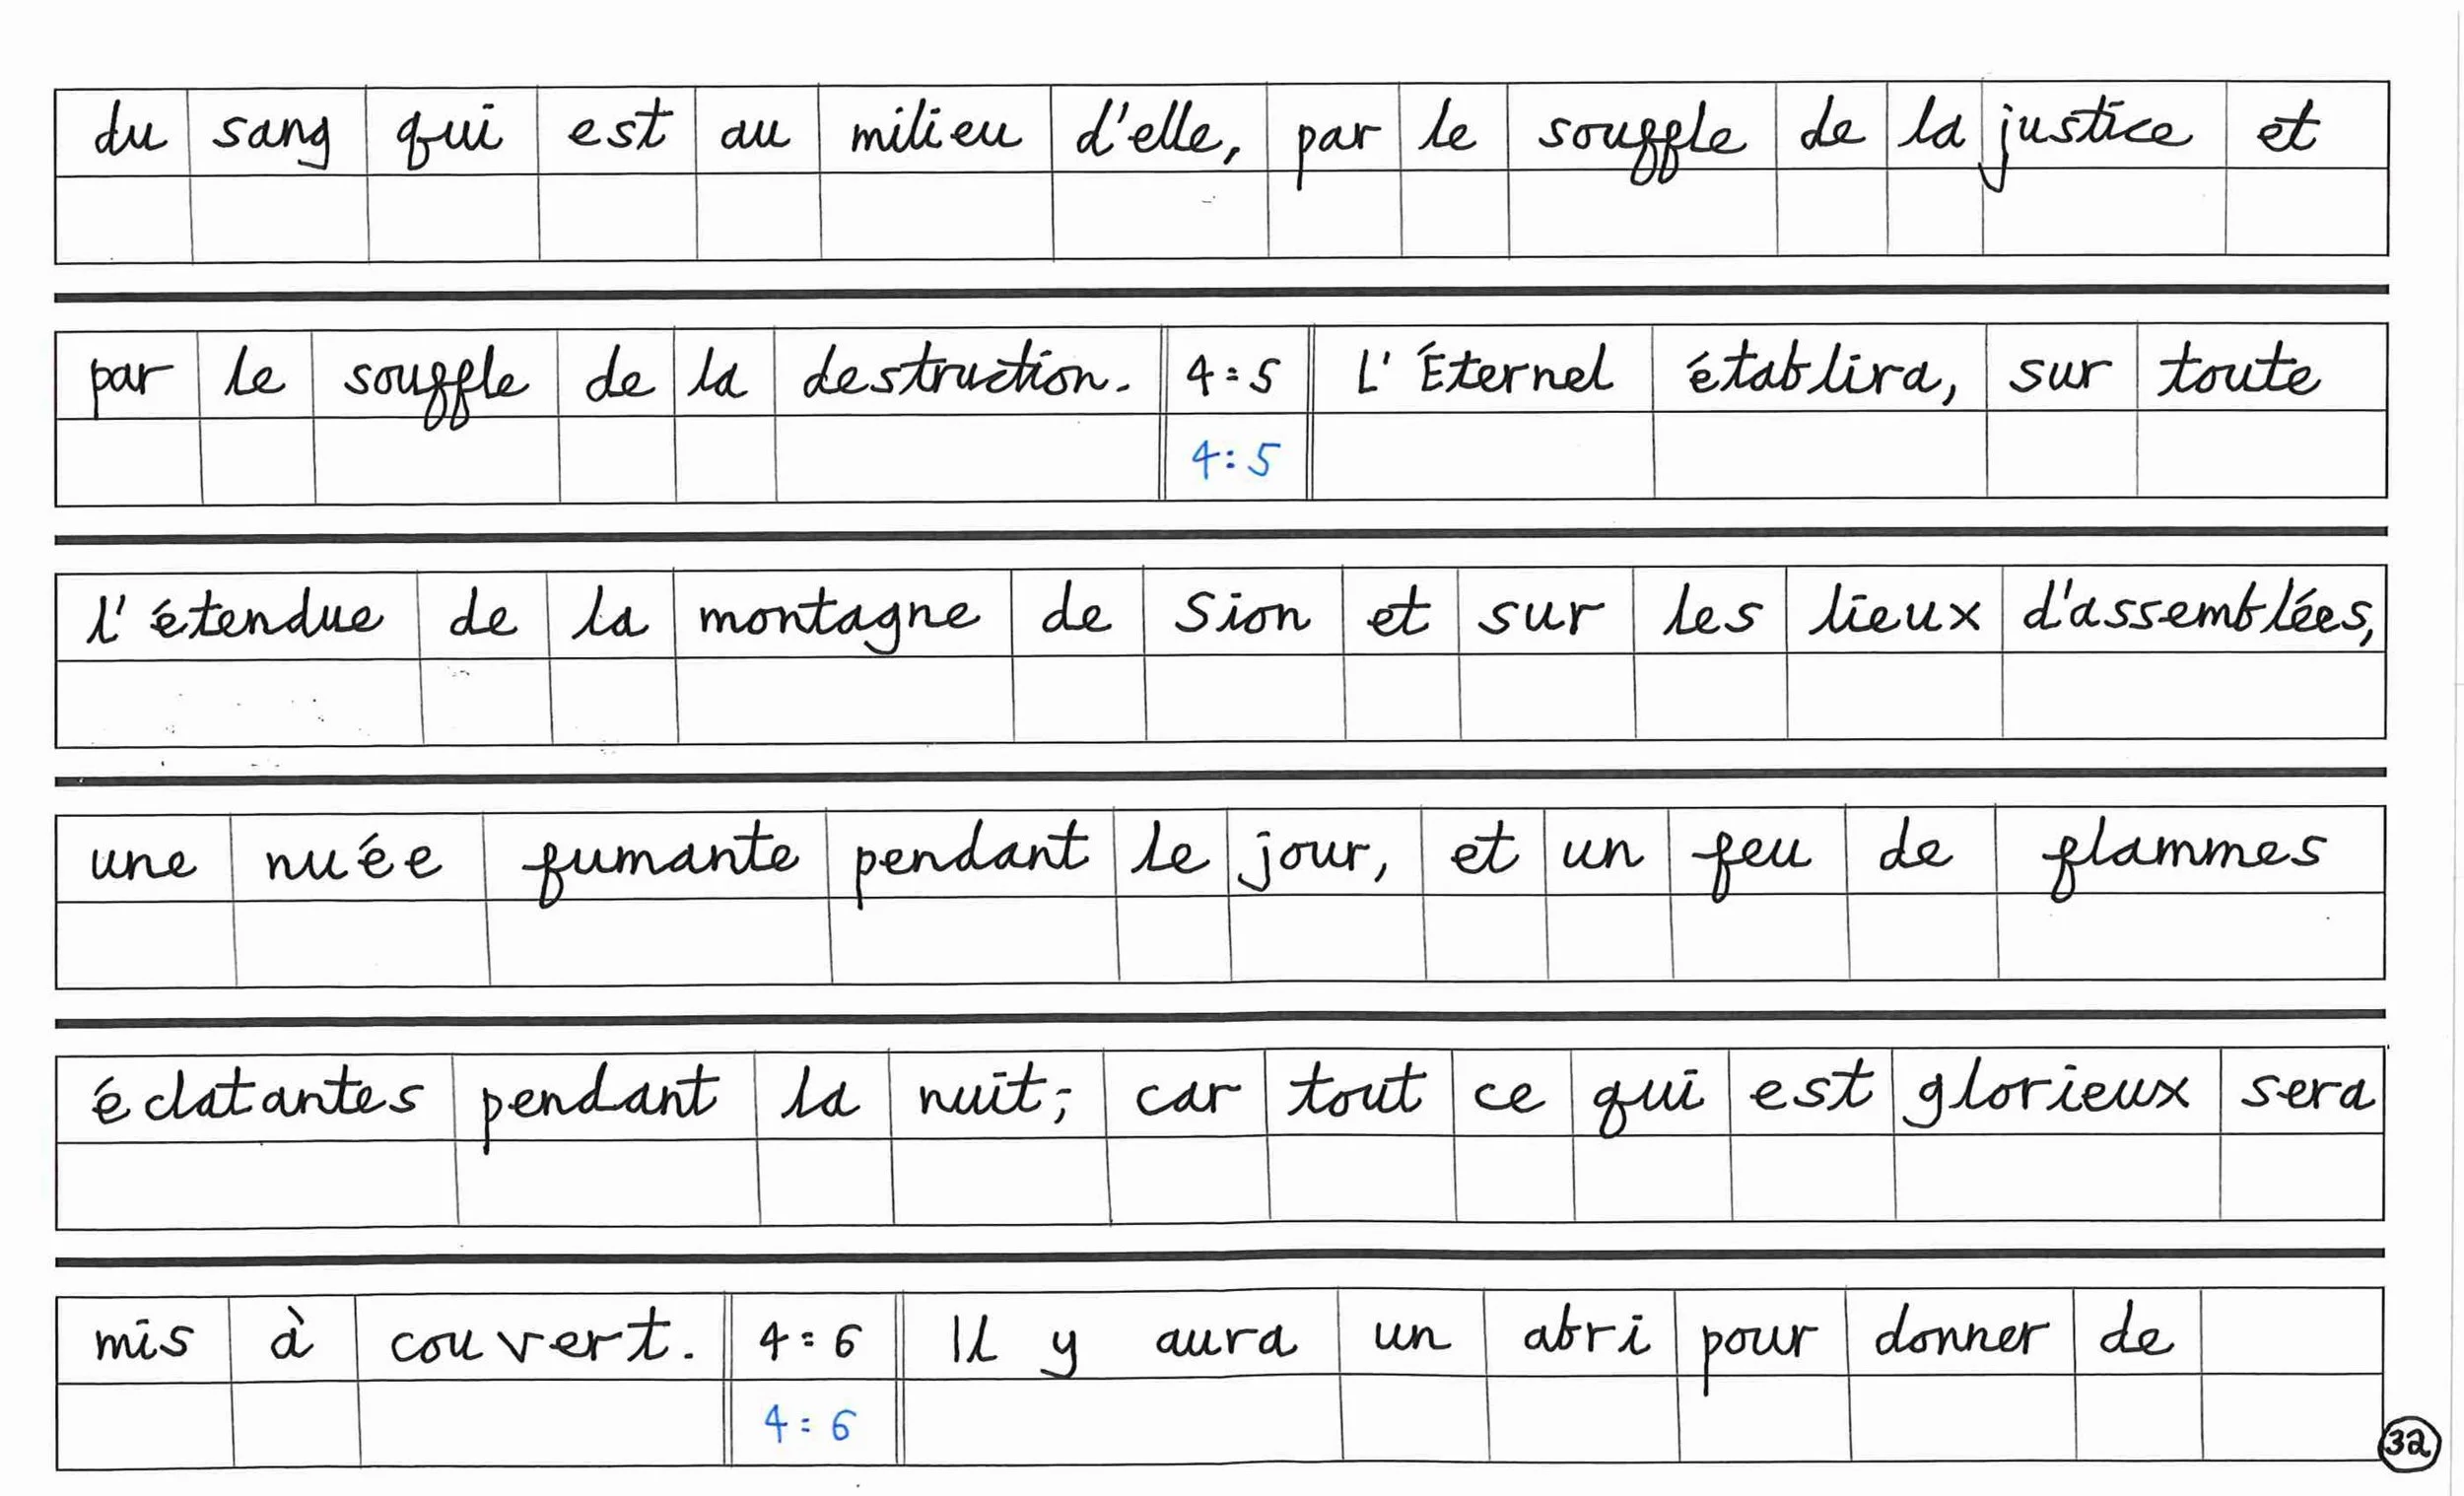 du sang qui est au milieu d'elle, par le souffle de la justice et
par le souffle de la destruction. 4:5 L'Éternel établira, sur toute
4:5
l'étendue de la montagne de Sion et sur les lieux d'assemblées,
une nuée fumante pendant le jour, et un feu de flammes
éclatantes pendant la nuit; car tout ce qui est glorieux sera
mis à couvert. 4:6 Il y aura un abri pour donner de
4:6
32